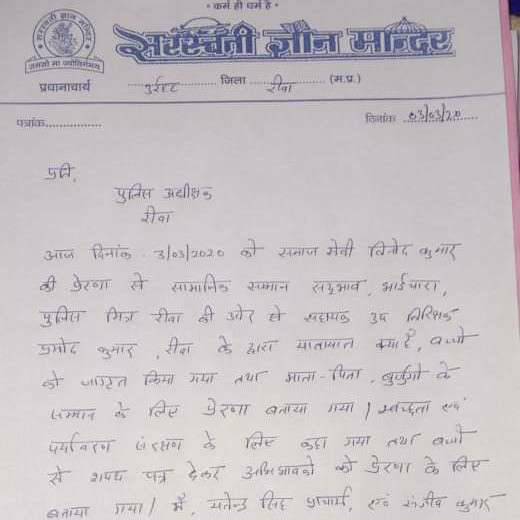 • कर्म ही धर्म है •
सरस्वती ज्ञान मन्दिर
सरस्वती ज्ञान मन्दिर
तमसो मा ज्योतिर्गमय
प्रधानाचार्य जिला रीवा (म.प्र.)
पत्रांक............... दिनांक 03/03/20
प्रति,
पुलिस अधीक्षक
रीवा
आज दिनांक 3/03/2020 को समाज सेवी विनोद कुमार
की प्रेरणा से सामाजिक सम्मान सद्भाव, भाईचारा,
पुलिस मित्र रीवा की ओर से सहायक उप निरिक्षक
प्रमोद कुमार, रीवा के द्वारा यातायात क्या है, बच्चो
को जागृत किया गया तथा माता-पिता, बुर्जुगो के
सम्मान के लिए प्रेरणा बताया गया। स्वच्छता एवं
पर्यावरण संरक्षण के लिए कहा गया तथा बच्चो
से शपथ पत्र देकर अभिभावको को प्रेरणा के लिए
बताया गया। मैं, सिंह प्राचार्य, एवं संजीव कुमार